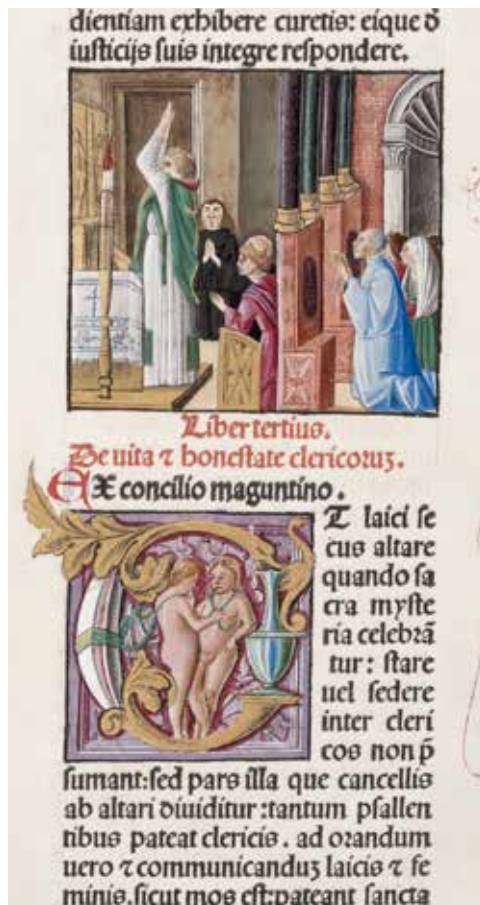 dientiam exhibere curetis: eiqꝫ ð
iusticijs suis integre respondere.
Liber tertius.
De uita ⁊ honestate clericoruꝫ.
EX concilio maguntino.
T laici se
cus altare
quando sa
cra myste
ria celebrā
tur: stare
uel sedere
inter cleri
cos non p̄
sumant: sed pars illa que cancellis
ab altari diuiditur: tantum psallen
tibus pateat clericis. ad orandum
uero ⁊ communicanduꝫ laicis ⁊ fe
minis. sicut mos est: pateant sancta